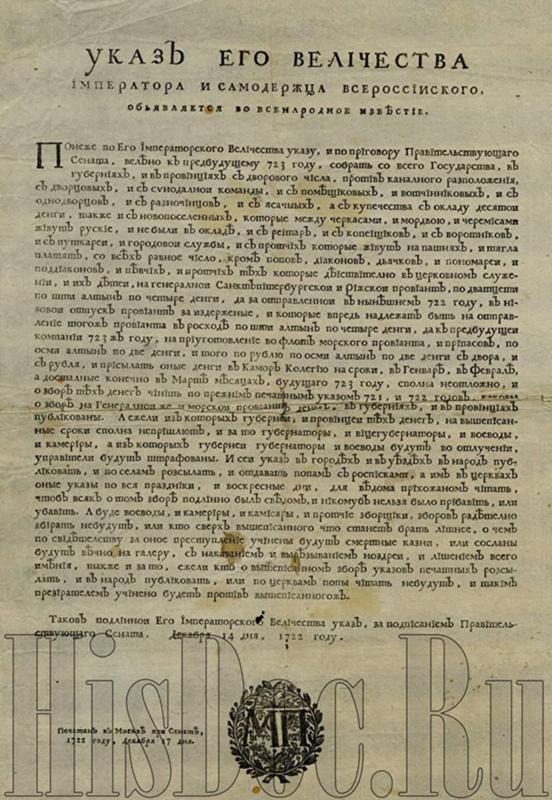 УКАЗЪ ЕГО ВЕЛІЧЕСТВА
ІМПЕРАТОРА И САМОДЕРЖЦА ВСЕРОССІИСКОГО,
ОБЬЯВЛЯЕТСЯ ВО ВСЕНАРОДНОЕ ИЗВѢСТІЕ.
Понеже по Его Імператорского Велічества указу, и по пріговору Правітельствующаго
Сената, велѣно къ предбудущему 723 году, собрать со всего Государства, въ
губерніяхъ, и въ провінціяхъ съ дворового чісла, протівъ каналного разположенія,
съ дворцовыхъ, и съ сунодалноі команды, и съ помѣщіковыхъ, и вотчінніковыхъ, и съ
однодворцовъ, и съ разночінцовъ, и съ ясачныхъ, а съ купечества съ окладу десятоі
денги, также и съ новопоселенныхъ, которые между черкасами, и мордвою, и черемісами
жівутъ рускіе, и не были въ окладѣ, и съ реітаръ, и съ копеіщіковъ, и съ воротніковъ,
и съ пушкареи, и городовоі службы, и съ протчіхъ которые жівутъ на пашняхъ, и тягла
платятъ, со всѣхъ равное чісло, кромѣ поповъ, діаконовъ, дьячковъ, и пономареи, и
поддіаконовъ, и пѣвчіхъ, и протчіхъ тѣхъ которые дѣіствітелно въ церковномъ служе-
ніи, и ихъ дѣтеи, на генералноі Санктъпітербургскоі и Ріжскоі провіантъ, по дватцети
по пяти алтынъ по четыре денги, да за отправленноі въ нынѣшнемъ 722 году, въ ні-
зовоі отпускъ провіантъ за издержаные, и которые впредь надлежатъ быть на отправ-
леніе тогожъ провіанта въ росходѣ по пяти алтынъ по четыре денги, да къ предбудущеи
компаніи 723 жъ году, на пріуготовленіе во флотъ морского провіанта, и пріпасовъ, по
осми алтынъ по две денги, и того по рублю по осми алтынъ по две денги съ двора, и
съ рубля, и прісылать оные денги въ Каморъ Колегію на сроки, въ Генварѣ, въ Февралѣ,
а достальные конечно въ Мартѣ мѣсяцахъ, будущаго 723 году, сполна неотложно, и
о зборѣ тѣхъ денегъ чініть по прежнімъ печатнымъ указомъ 721, и 722 годовъ, каковы
о зборѣ на Генералноі же и морскоі провіантъ денегъ, въ губерніяхъ, и въ провінціяхъ
публікованы. А ежели изъ которыхъ губерніи, и провінцеи тѣхъ денегъ, на вышепісан-
ные сроки сполна непрішлютъ, и за то губернаторы, и віцегубернаторы, и воеводы,
и камеріры, а изъ которыхъ губернеи губернаторы и воеводы будутъ во отлученіи,
управітели будутъ штрафованы. И сеи указъ въ городѣхъ и въ уѣздѣхъ въ народъ пуб-
ліковать, и по селамъ розсылать, и отдавать попамъ съ роспісками, а имъ въ церквахъ
оные указы по вся праздніки, и воскресные дни, для вѣдома пріхожаномъ чітать,
чтобъ всякъ о томъ зборѣ подлінно былъ свѣдомъ, и нікомубъ нельзя было прібавіть, или
убавіть. А буде воеводы, и камеріры, и комісары, и протчіе зборщіки, зборовъ радѣтелно
збірать небудутъ, или кто сверхъ вышепісанного что станетъ брать лішнее, о чемъ
по свідѣтелству за оное преступленіе учінены будутъ смертные казни, или сосланы
будутъ вѣчно на галеру, съ наказаніемъ и вырѣзываніемъ ноздреи, и лішеніемъ всего
имѣнія, также и за то, ежели кто о вышепісанномъ зборѣ указовъ печатныхъ розсы-
лать, и въ народъ публіковать, или по церквамъ попы чітать небудутъ, и такімъ
презірателемъ учінено будетъ протівъ вышепісанногожъ.
Таковъ подлінноі Его Імператорского Велічества указъ, за подпісаніемъ Правітель-
ствующаго Сената. Декабря 14 дня, 1722 году.
Печатанъ въ Москвѣ при Сенатѣ,
1722 году, декабря 17 дня.
HisDoc.Ru